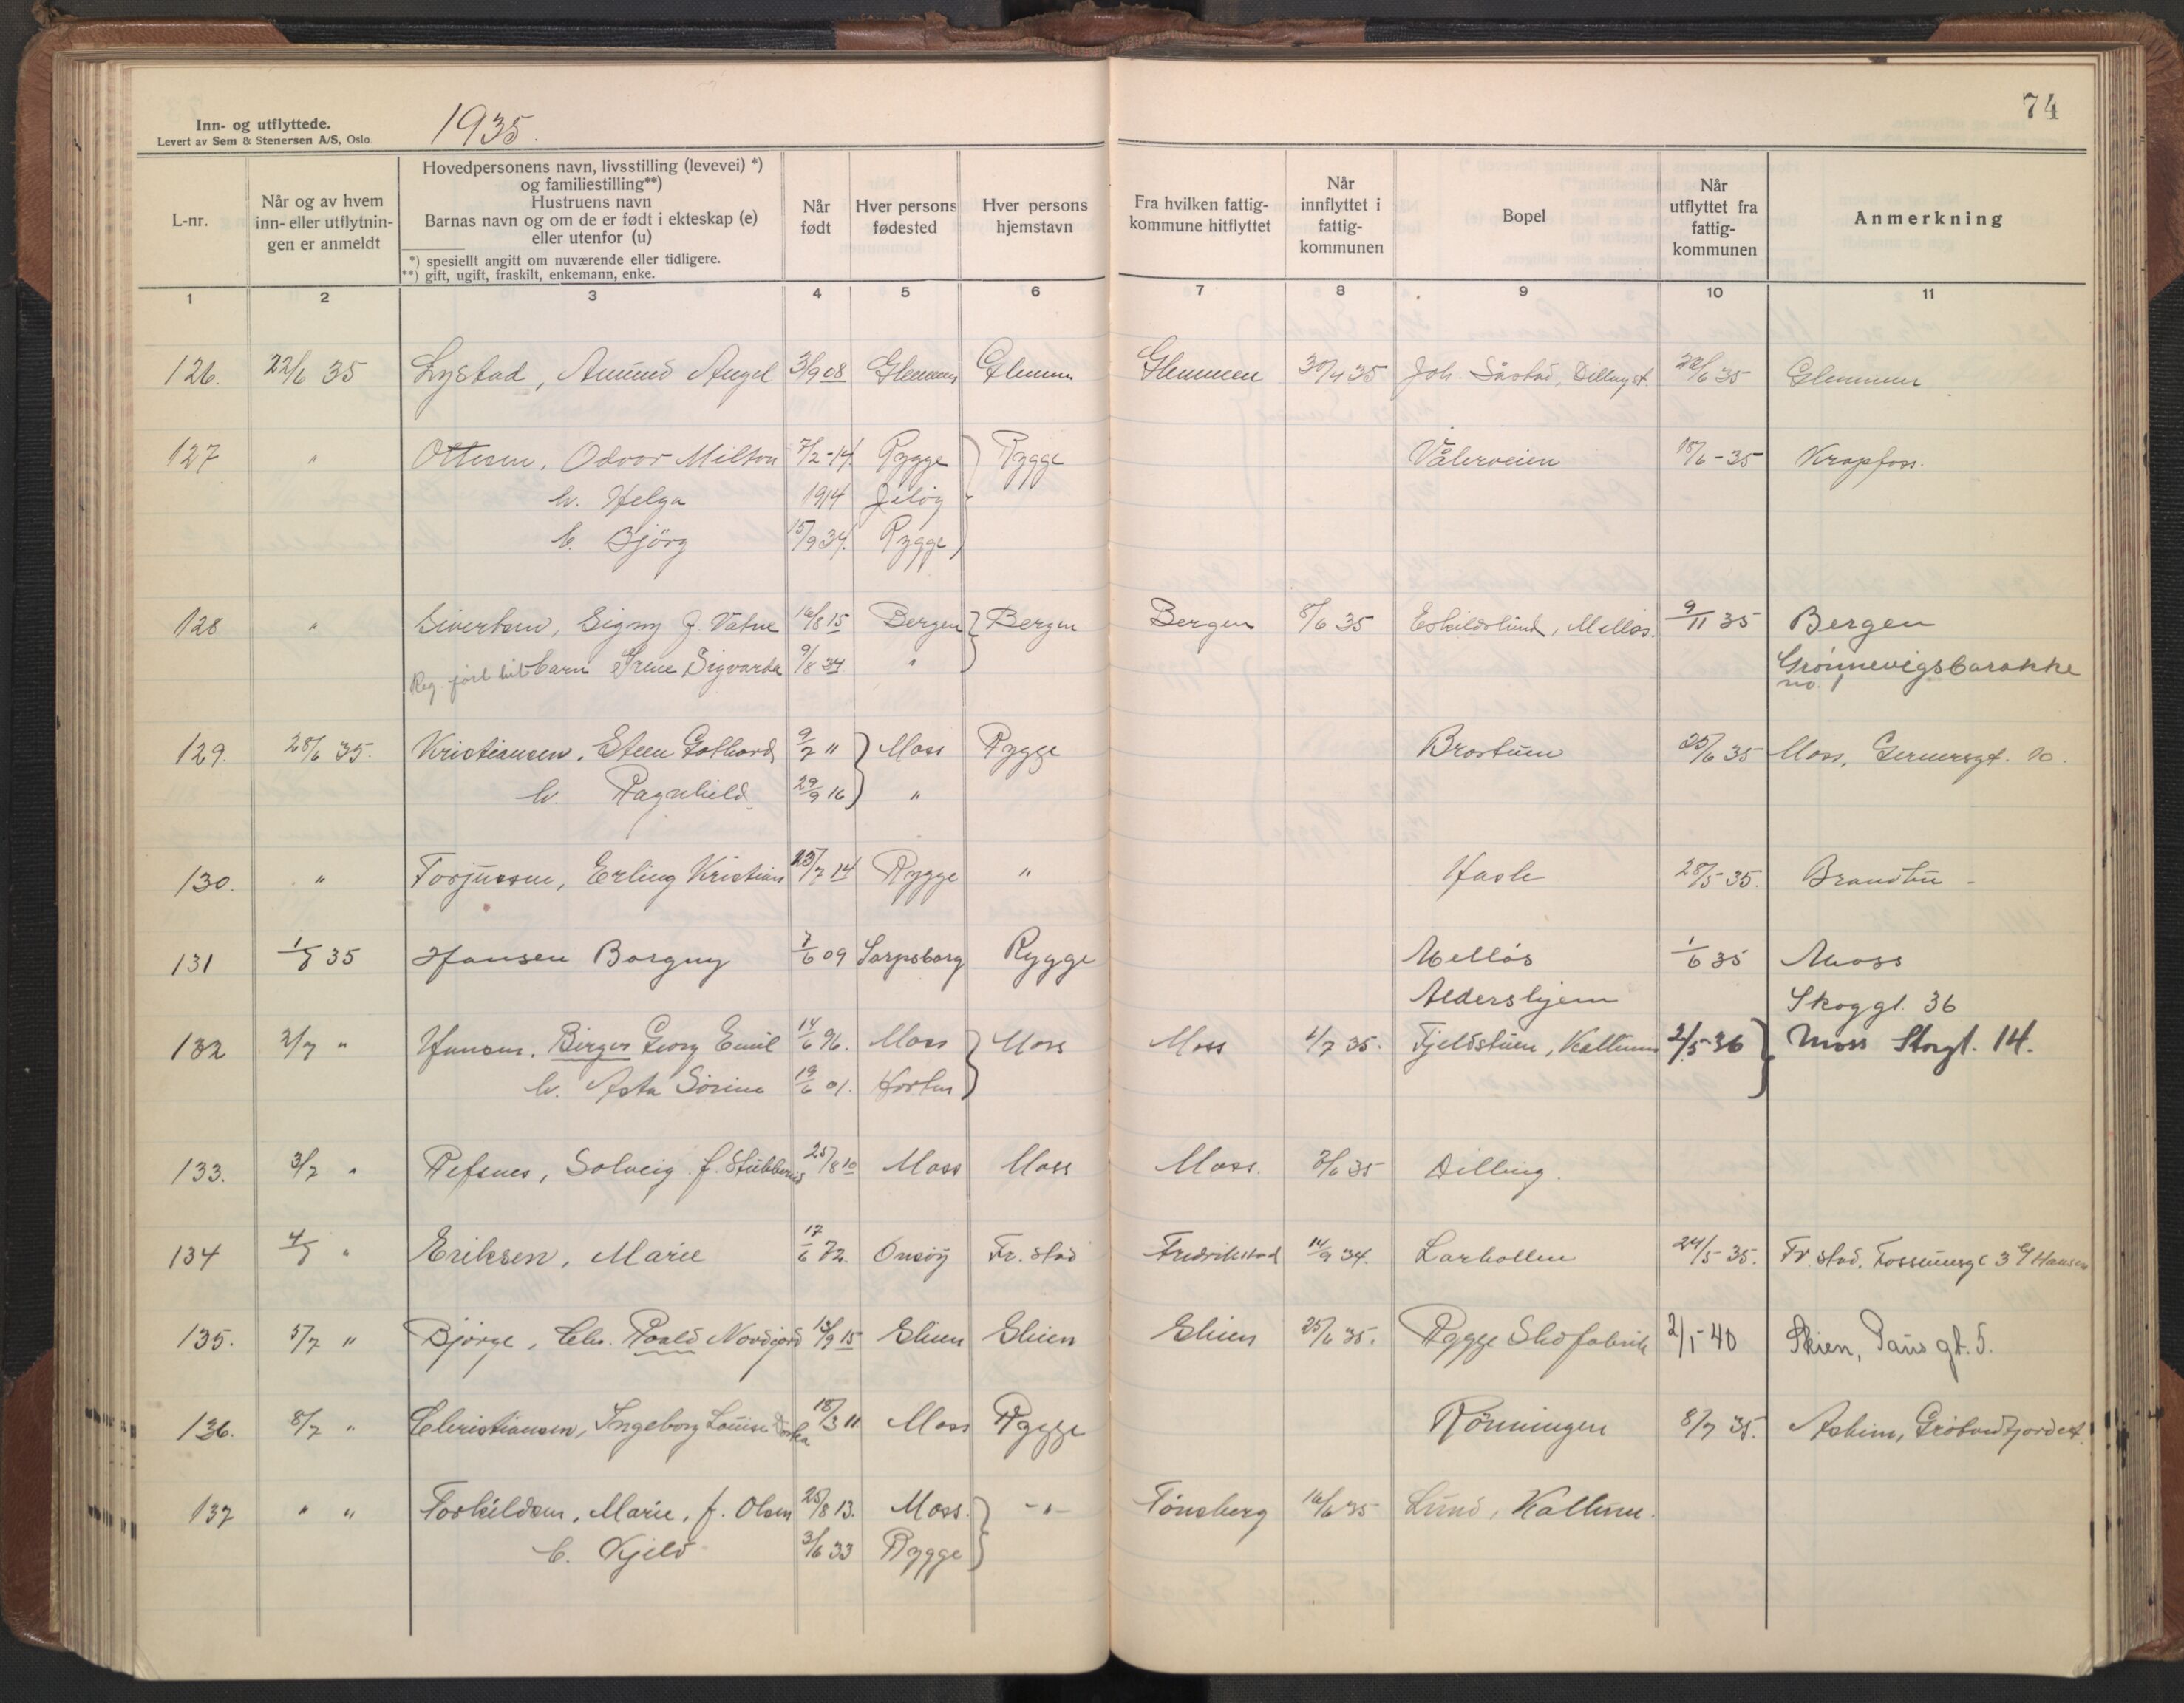 74
Inn- og utflyttede.
Levert av Sem & Stenersen A/S, Oslo.
1935.
L-nr.
Når og av hvem inn- eller utflytningen er anmeldt
Hovedpersonens navn, livsstilling (levevei) *)
og familiestilling**)
Hustruens navn
Barnas navn og om de er født i ekteskap (e)
eller utenfor (u)
*) spesiellt angitt om nuværende eller tidligere.
**) gift, ugift, fraskilt, enkemann, enke.
Når født
Hver persons fødested
Hver persons hjemstavn
Fra hvilken fattigkommune hitflyttet
Når innflyttet i fattigkommunen
Bopel
Når utflyttet fra fattigkommunen
Anmerkning
1 2 3 4 5 6 7 8 9 10 11
126. 22/6 35 Lystad, Amund Angel 3/9 08 Glemmen Glemmen Glemmen 30/4 35 Joh. Såstad, Dilling st. 22/6 35 Glemmen
127 " Ottesen, Odvar Milton 7/2-14. Rygge Rygge Vålerveien 18/6-35 Krapfoss.
h. Helga 1914 Jeløy
b. Bjørg 15/9 34. Rygge
128 " Sivertsen, Signy f. Vatne 16/8 15 Bergen Bergen Bergen 8/6 35 Eskildslund, Melløs. 9/11 35 Bergen
Reg. ført hit barn Irene Sigvarda 9/8 34 " Grønnevigsbarakke
no. 1
129. 28/6 35. Kristiansen, Steen Gothard 9/7 11 Moss Rygge Brostuen 25/6 35 Moss, Gernersgt. 10.
h. Ragnhild 29/9 16 "
130. " Torjussen, Erling Kristian 25/7 14 Rygge " Hasle 28/5 35. Brandbu
131 1/7 35 Hansen Borgny 7/6 09 Sarpsborg Rygge Melløs 1/6 35 Moss
Aldershjem Skoggt. 36
132 2/7 " Hansen, Birger Georg Emil 14/6 96. Moss Moss Moss 1/7 35. Fjeldstuen, Kallum 2/5-36 Moss Storgt. 14.
h. Asta Sørine 19/6 01. Horten
133. 3/7 " Refsnes, Solveig f. Stubberud 25/8 10 Moss Moss Moss. 3/6 35 Dilling.
134 4/7 " Eriksen, Marie 17/6 72. Onsøy Fr.stad Fredrikstad 14/9 34. Larkollen 24/5 35. Fr.stad. 3 Hansen
135. 5/7 " Bjørge, Chr. Roald Nordgård 13/9 15 Skien Skien Skien 25/6 35. Rygge Skofabrik 2/1-40 Skien, Paus gt. 5.
136. 8/7 " Christiansen, Ingeborg Louise 18/3 11 Moss Rygge Rønningen 8/7 35. Askim,
137 " " Torkildsen, Marie, f. Olsen 25/8 13. Moss. -"- Tønsberg 16/6 35 Lund, Kallum.
b. Kjeld 3/6 33 Rygge